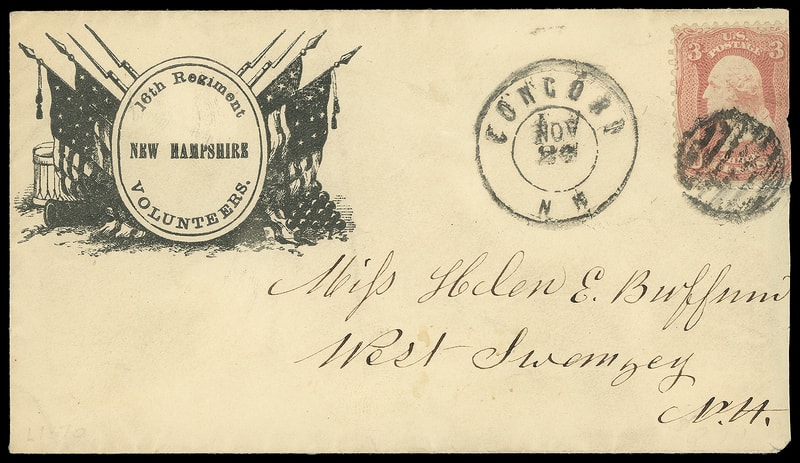 16th Regiment
NEW HAMPSHIRE
VOLUNTEERS.
CONCORD
NOV
N H
3 U.S. 3
POSTAGE
Miss Helen E. Buffum
West Swanzey
N.H.